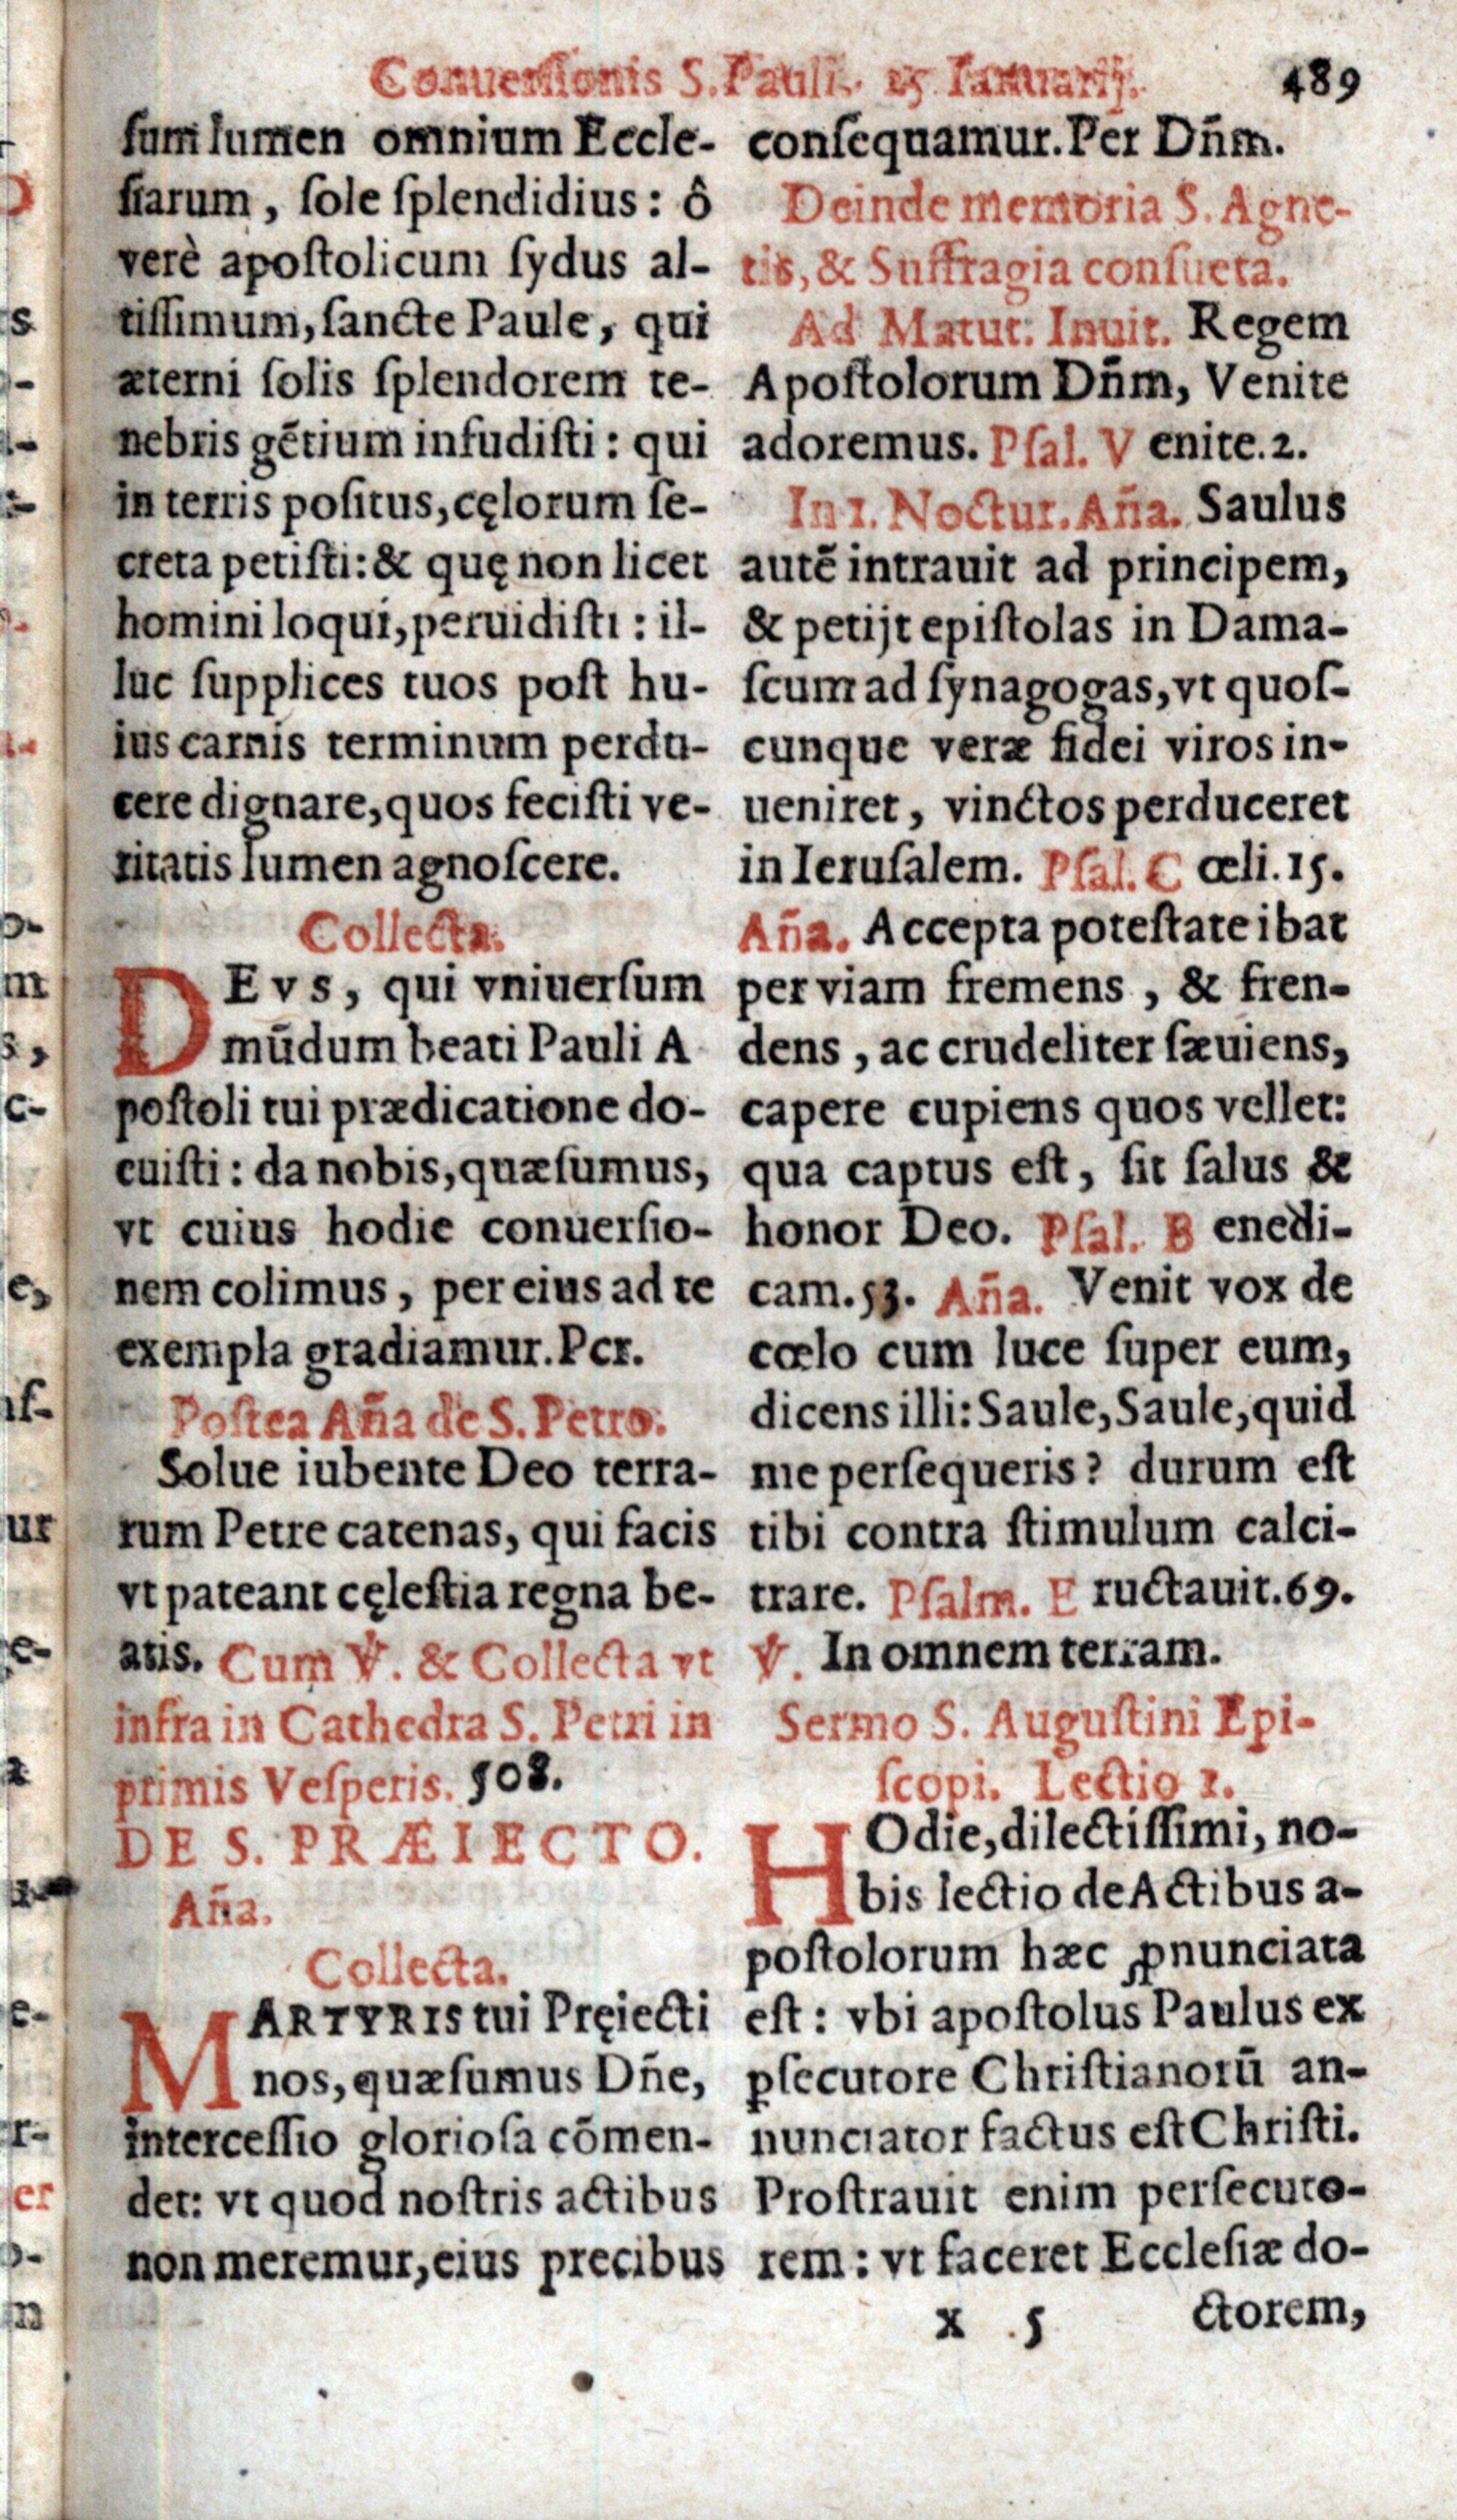 Conuersionis S. Pauli. 25 Ianuarij. 489
sum lumen omnium Eccle-
siarum, sole splendidius: ô
verè apostolicum sydus al-
tissimum, sancte Paule, qui
æterni solis splendorem te-
nebris gẽtium infudisti: qui
in terris positus, cęlorum se-
creta petisti: & quę non licet
homini loqui, peruidisti: il-
luc supplices tuos post hu-
ius carnis terminum perdu-
cere dignare, quos fecisti ve-
ritatis lumen agnoscere.
Collecta.
DEvs, qui vniuersum
mũdum beati Pauli A
postoli tui prædicatione do-
cuisti: da nobis, quæsumus,
vt cuius hodie conuersio-
nem colimus, per eius ad te
exempla gradiamur. Per.
Postea Añа de S. Petro.
Solue iubente Deo terra-
rum Petre catenas, qui facis
vt pateant cęlestia regna be-
atis. Cum ℣. & Collecta vt
infra in Cathedra S. Petri in
primis Vesperis. 508.
DE S. PRÆIECTO.
Aña.
Collecta.
MARTYRIS tui Pręiecti
nos, quæsumus Dñe,
intercessio gloriosa cõmen-
det: vt quod nostris actibus
non meremur, eius precibus
consequamur. Per Dñm.
Deinde memoria S. Agne-
tis, & Suffragia consueta.
Ad Matut. Inuit. Regem
Apostolorum Dñm, Venite
adoremus. Psal. Venite. 2.
In 1. Noctur. Aña. Saulus
autẽ intrauit ad principem,
& petijt epistolas in Dama-
scum ad synagogas, vt quos-
cunque veræ fidei viros in-
ueniret, vinctos perduceret
in Ierusalem. Psal. Cœli. 15.
Aña. Accepta potestate ibat
per viam fremens, & fren-
dens, ac crudeliter sæuiens,
capere cupiens quos vellet:
qua captus est, sit salus &
honor Deo. Psal. Benedi-
cam. 53. Aña. Venit vox de
cœlo cum luce super eum,
dicens illi: Saule, Saule, quid
me persequeris? durum est
tibi contra stimulum calci-
trare. Psalm. Eructauit. 69.
℣. In omnem terram.
Sermo S. Augustini Epi-
scopi. Lectio 1.
HOdie, dilectissimi, no-
bis lectio de Actibus a-
postolorum hæc ꝓnunciata
est: vbi apostolus Paulus ex
ꝑsecutore Christianorũ an-
nunciator factus est Christi.
Prostrauit enim persecuto-
rem: vt faceret Ecclesiæ do-
x 5 ctorem,